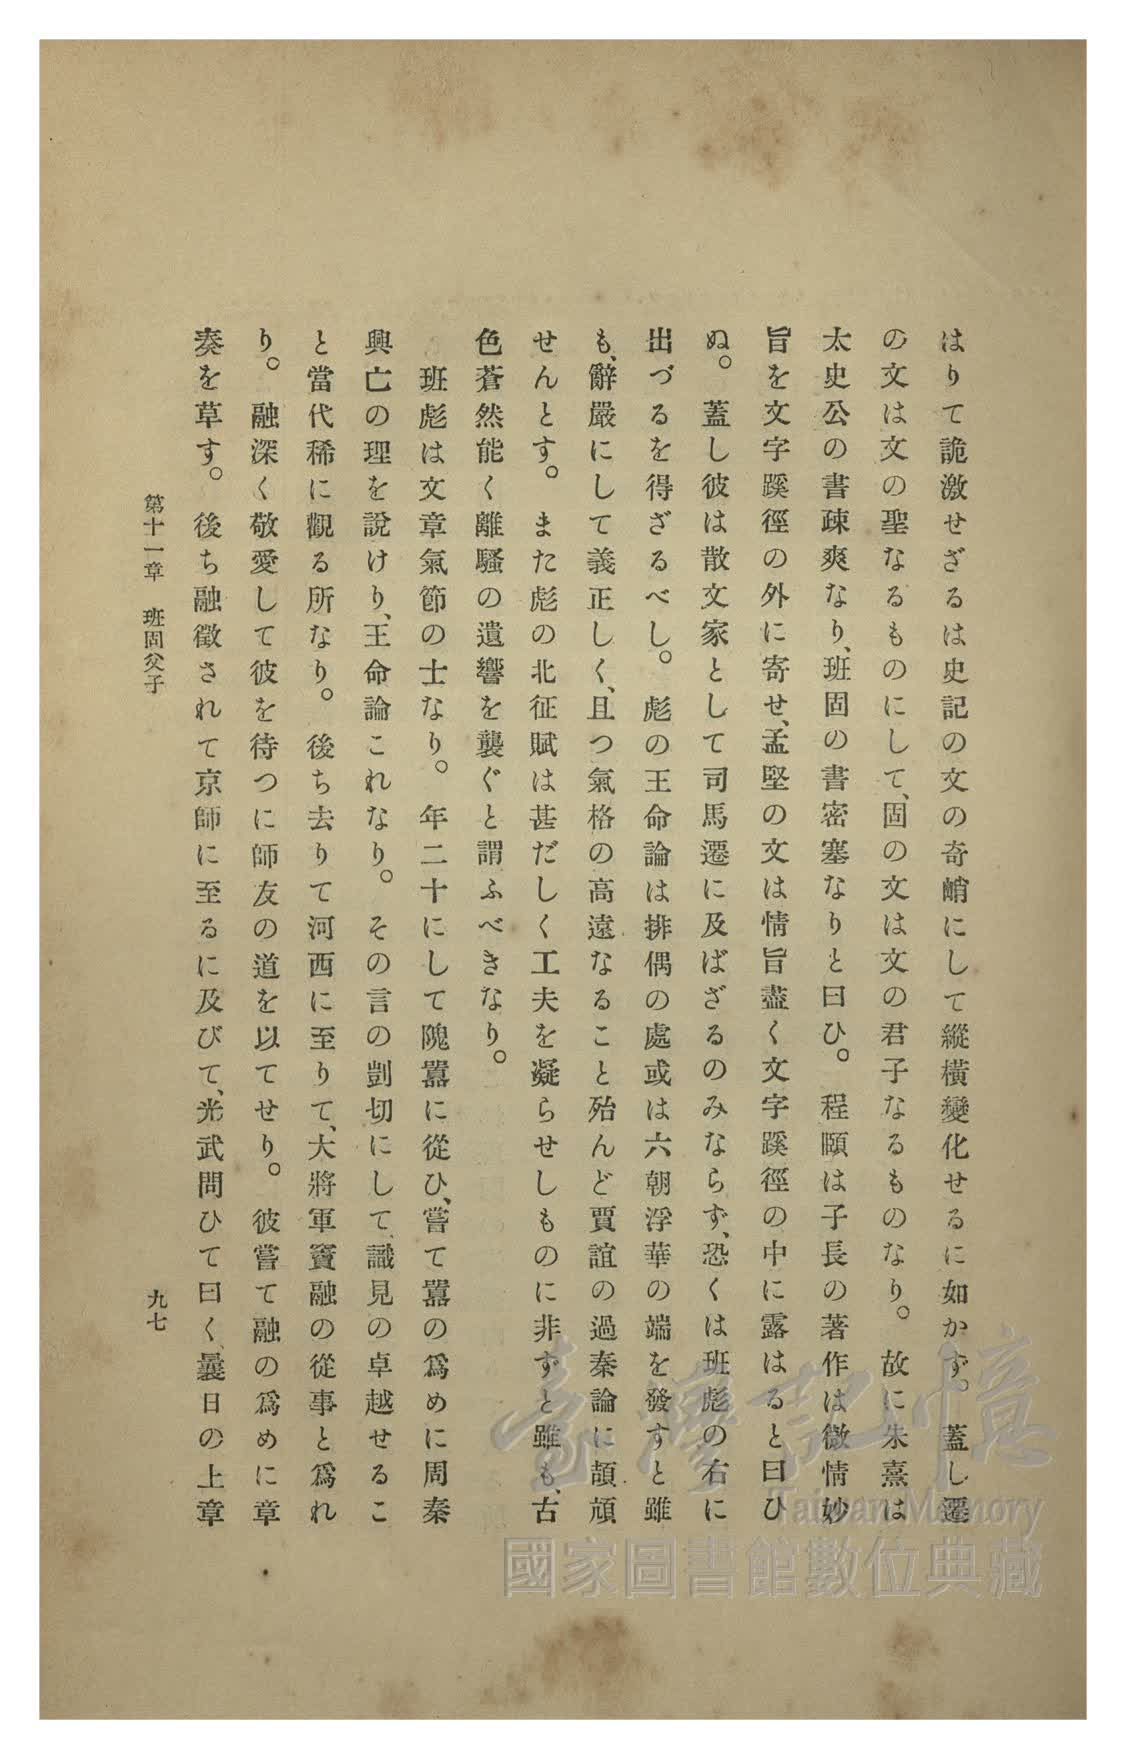 はりて詭激せざるは史記の文の奇峭にして縱橫變化せるに如かず。蓋し遷
の文は文の聖なるものにして、固の文は文の君子なるものなり。故に朱熹は
太史公の書疎爽なり、班固の書密塞なりと曰ひ。程頤は子長の著作は微情妙
旨を文字蹊徑の外に寄せ、孟堅の文は情旨盡く文字蹊徑の中に露はると曰ひ
ぬ。蓋し彼は散文家として司馬遷に及ばざるのみならず、恐くは班彪の右に
出づるを得ざるべし。彪の王命論は排偶の處或は六朝浮華の端を發すと雖
も、辭嚴にして義正しく、且つ氣格の高遠なること殆んど賈誼の過秦論に頡頏
せんとす。また彪の北征賦は甚だしく工夫を凝らせしものに非ずと雖も、古
色蒼然能く離騷の遺響を襲ぐと謂ふべきなり。
班彪は文章氣節の士なり。年二十にして隗囂に從ひ、嘗て囂の爲めに周秦
興亡の理を說けり、王命論これなり。その言の剴切にして、識見の卓越せるこ
と當代稀に觀る所なり。後ち去りて河西に至りて、大將軍竇融の從事と爲れ
り。融深く敬愛して彼を待つに師友の道を以てせり。彼嘗て融の爲めに章
奏を草す。後ち融徵されて京師に至るに及びて、光武問ひて曰く、曩日の上章
第十一章 班固父子
九七
臺灣記憶
Taiwan Memory
國家圖書館數位典藏